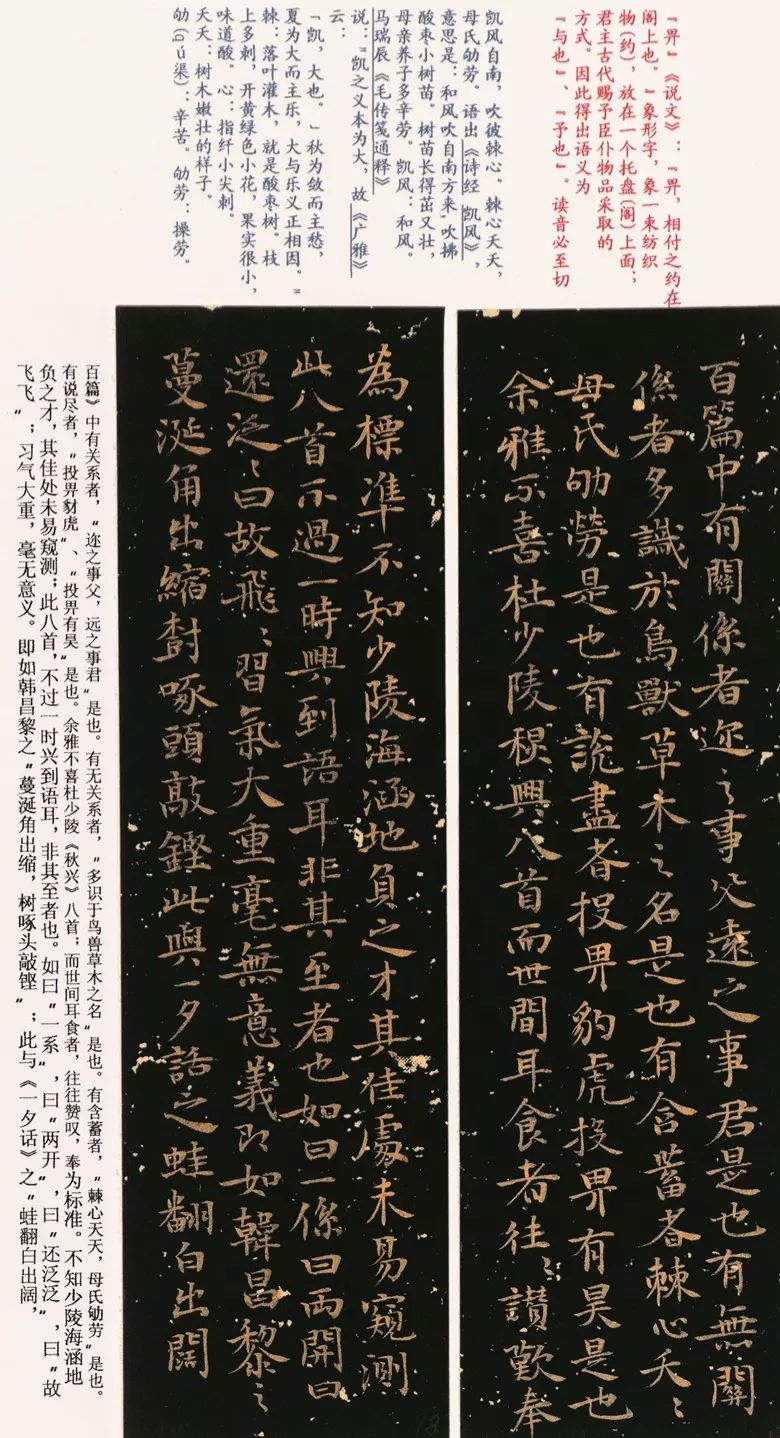 『畀』《说文》：『畀，相付之约在
阁上也。』象形字，象一束纺织
物(约)，放在一个托盘(阁)上面；
君主古代赐予臣仆物品采取的
方式。因此得出语义为
『与也』、『予也』。 读音必至切
凯风自南，吹彼棘心。棘心夭夭，
母氏劬劳。语出《诗经 凯风》，
意思是：和风吹自南方来，吹拂
酸枣小树苗。树苗长得茁又壮，
母亲养子多辛劳。凯风：和风。
马瑞辰《毛传笺通释》
说：“凯之义本为大，故《广雅》
云：
「凯，大也。」秋为敛而主愁，
夏为大而主乐，大与乐义正相因。”
棘：落叶灌木，就是酸枣树。枝
上多刺，开黄绿色小花，果实很小，
味道酸。心：指纤小尖刺。
夭夭：树木嫩壮的样子。
劬(qú渠)：辛苦。劬劳：操劳。
百篇中有關係者迩之事父遠之事君是也有無關
係者多識於鳥獸草木之名是也有含蓄者棘心夭〻
母氏劬勞是也有說盡者投畀豺虎投畀有昊是也
余雅不喜杜少陵秋興八首而世間耳食者往〻讃歎奉
為標準不知少陵海涵地負之才其佳處未易窺測
此八首不過一時興到語耳非其至者也如曰一係曰兩開曰
還泛〻曰故飛〻習氣大重毫無意義即如韓昌黎之
蔓涎角出縮樹啄頭敲鏗此與一夕話之蛙翻白出闊
百篇》中有关系者，“迩之事父，远之事君”是也。有无关系者，“多识于鸟兽草木之名”是也。有含蓄者，“棘心夭夭，母氏劬劳”是也。
有说尽者，“投畀豺虎”、“投畀有昊”是也。余雅不喜杜少陵《秋兴》八首；而世间耳食者，往往赞叹，奉为标准。不知少陵海涵地
负之才，其佳处未易窥测；此八首，不过一时兴到语耳，非其至者也。如曰“一系”，曰“两开”，曰“还泛泛”，曰“故
飞飞”；习气大重，毫无意义。即如韩昌黎之“蔓涎角出缩，树啄头敲铿”；此与《一夕话》之“蛙翻白出阔，